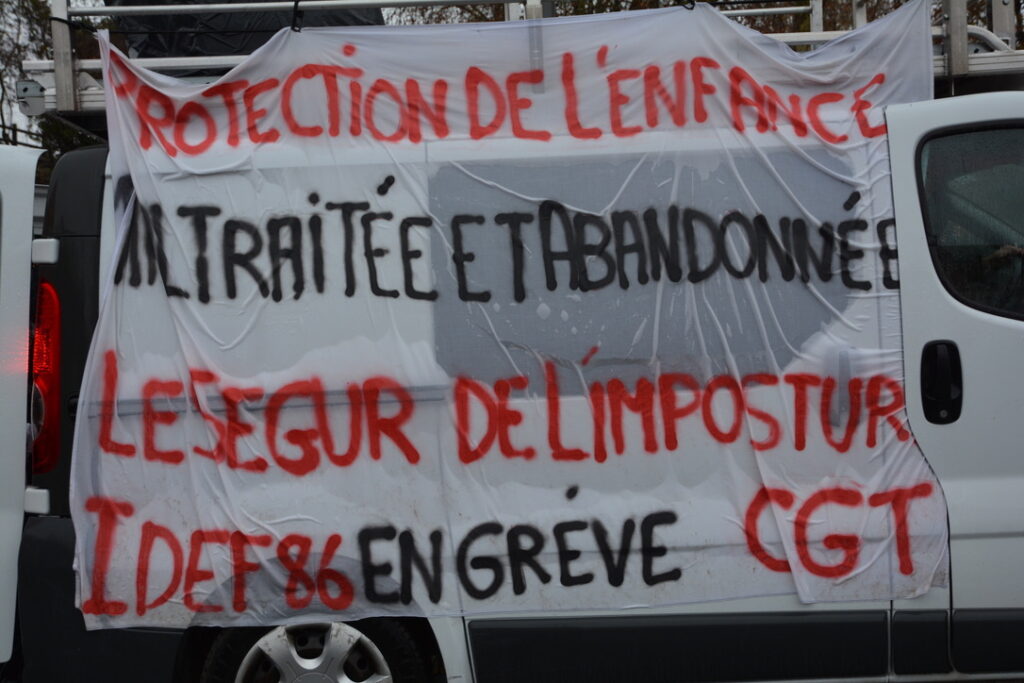 PROTECTION DE L'ENFANCE
MALTRAITÉE ET ABANDONNÉE
LE SEGUR DE L'IMPOSTUR
IDEF 86 EN GRÉVE CGT